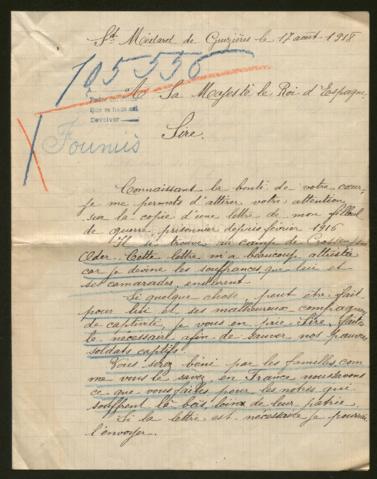 St Médard de Guizières le 17 août 1918
105556
A Sa Majesté le Roi d'Espagne,
Devolver
Sire,
Connaissant la bonté de votre cœur,
je me permets d'attirer votre attention
sur la copie d'une lettre de mon filleul
de guerre, prisonnier depuis février 1916
Il se trouve au camp de Crossen
Oder. Cette lettre m'a beaucoup attristée
car je devine les souffrances que lui et
ses camarades, endurent.
Si quelque chose, peut être fait
pour lui et ses malheureux compagnons
de captivité, je vous en prie Sire, faites
le nécessaire afin de sauver nos pauvres
soldats captifs.
Vous serez béni par les familles com
me vous le savez en France nous savons
ce que vous faites pour les nôtres qui
souffrent là-bas, loin de leur patrie.
Si la lettre est nécessaire je pourrai
l'envoyer.